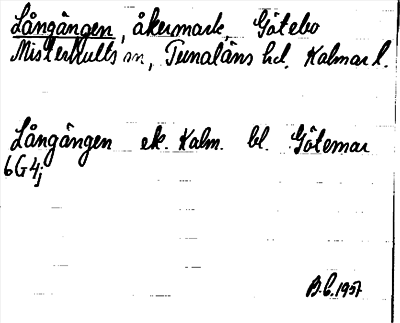 Långängen, åkermark, Götebo
Misterhults sn, Tunaläns hd. Kalmar l.
Långängen ek. Kalm. bl. Götemar
6G4j
B.E. 1957